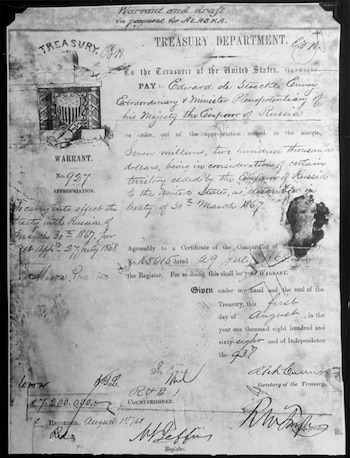 Warrant and draft
in payment for ALASKA.
TREASURY
TREASURY DEPARTMENT.
To the Treasurer of the United States,
PAY Edward de Stoeckl Envoy
Extraordinary & Minister Plenipotentiary of
his Majesty the Emperor of Russia
or order, out of the appropriation named in the margin,
Seven millions, two hundred thousand
dollars, being in consideration of certain
territory ceded by the Emperor of Russia
to the United States, as described in
treaty of 30th March 1867.
WARRANT.
No. 927
APPROPRIATION.
To carry into effect the
treaty with Russia of
March 30th 1867, per
27 July 1868
Agreeably to a Certificate of the Comptroller
dated 29 July
the Register. For so doing, this shall be your WARRANT.
Given under my hand and the seal of the
Treasury, this first
day of August, in the
year one thousand eight hundred and
sixty-eight and of Independence
the 93d
Secretary of the Treasury.
$7,200,000
COUNTERSIGNED.
RECORDED, August 1st/68
Register.